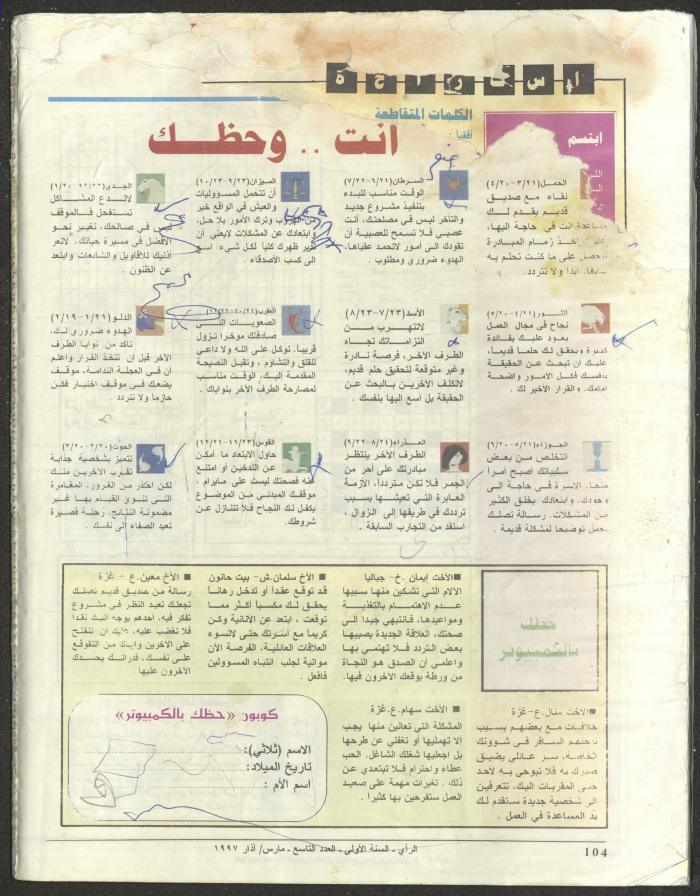 استراحة
الكلمات المتقاطعة
أفقيا :
ابتسم
انت .. وحظـك
الحمل (٣/٢١-٤/٢٠)
لقاء مع صديق
قديم يقدم لك
مساعدة انت في حاجة اليها،
زمام المبادرة
لتحصل على ما كنت تحلم به
سابقا. ابدا ولا تتردد.
السرطان (٦/٢١-٧/٢٢)
الوقت مناسب للبدء
بتنفيذ مشروع جديد
والتأخر ليس في مصلحتك، أنت
عصبي فلا تسمح للعصبية أن
تقودك الى أمور لاتحمد عقباها،
الهدوء ضروري ومطلوب.
الميزان (٩/٢٣-١٠/٢٣)
أن تتحمل المسؤوليات
والعيش في الواقع خير
من الهروب وترك الأمور بلا حل،
وابتعادك عن المشكلات لايعني أن
تدير ظهرك كليا لكل شيء. اسع
الى كسب الأصدقاء.
الجدي (١٢/٢٢-١/٢٠)
لاتدع المشاكل
تستفحل فالموقف
ليس في صالحك، تغيير نحو
الأفضل في مسيرة حياتك، لاتعر
أذنيك للأقاويل والشائعات وابتعد
عن الظنون.
الثور (٤/٢١-٥/٢٠)
نجاح في مجال العمل
يعود عليك بفائدة
كبيرة ويحقق لك حلما قديما،
عليك ان تبحث عن الحقيقة
بنفسك فكل الأمور واضحة
امامك. والقرار الأخير لك.
الأسد (٧/٢٣-٨/٢٣)
لاتتهرب من
التزاماتك تجاه
الطرف الآخر، فرصة نادرة
وغير متوقعة لتحقيق حلم قديم،
لاتكلف الآخرين بالبحث عن
الحقيقة بل أسع إليها بنفسك.
العقرب (١٠/٢٤-١١/٢٢)
الصعوبات التي
صادفتك مؤخرا تزول
قريباً. توكل على الله ولا داعي
للقلق والتشاؤم، وتقبل النصيحة
المقدمة إليك، الوقت مناسب
لمصارحة الطرف الآخر بنواياك.
الدلو (١/٢١-٢/١٩)
الهدوء ضروري لك،
تأكد من نوايا الطرف
الآخر قبل أن تتخذ القرار واعلم
أن في العجلة الندامة. موقف
يضعك في موقف اختبار فكن
حازما ولا تتردد
الجوزاء (٥/٢١-٦/٢٠)
التخلص من بعض
سلبياتك أصبح أمرا
الأسرة في حاجة الى
وجودك. وابتعادك يخلق الكثير
من المشكلات. رسالة تصلك
تحمل توضيحا لمشكلة قديمة.
العذراء (٨/٢٤-٩/٢٢)
الطرف الآخر ينتظر
مبادرتك على أحر من
الجمر فلا تكن متردداً، الأزمة
العابرة التي تعيشها بسبب
ترددك في طريقها إلى الزوال،
استفد من التجارب السابقة.
القوس (١١/٢٣-١٢/٢١)
حاول الابتعاد ما أمكن
عن التدخين أو امتنع
عنه فصحتك ليست على مايرام،
موقفك المبدئي من الموضوع
يكفل لك النجاح فلا تتنازل عن
شروطك.
الحوت (٢/٢٠-٣/٢٠)
تتميز بشخصية جذابة
تقرب الآخرين منك
لكن احذر من الغرور، المغامرة
التي تنوي القيام بها غير
مضمونة النتائج، رحلة قصيرة
تعيد الصفاء إلى نفسك.
حظك
بالكمبيوتر
■الأخت إيمان .خ- جباليا
الآلام التي تشكين منها سببها
عدم الاهتمام بالتغذية
ومواعيدها، فانتبهي جيداً إلى
صحتك، العلاقة الجديدة يصيبها
بعض التردد فلا تهتمي بها
واعلمي أن الصدق هو النجاة
من ورطة يوقعك الآخرون فيها.
■ الأخ سلمان.ش- بيت حانون
قد توقع عقداً أو تدخل رهاناً
يحقق لك مكسباً أكثر مما
توقعت، ابتعد عن الأنانية وكن
كريما مع أسرتك حتى لاتسوء
العلاقات العائلية، الفرصة الآن
مواتية لجلب انتباه المسؤولين
فافعل.
■ الأخ معين.ع - غزة
رسالة من صديق قديم تصلك
تجعلك تعيد النظر في مشروع
تفكر فيه، أحدهم يوجه اليك نقدا
فلا تغضب عليه، عليك ان تنفتح
على الآخرين وإياك من التقوقع
على نفسك. قدراتك يحسدك
الآخرون عليها
■الأخت منال.ع-غزة
خلافات مع بعضهم بسبب
تدخلهم السافر في شؤونك
الخاصة، سر عائلي يضيق
صدرك به فلا تبوحي به لأحد
حتى المقربات اليك، تتعرفين
الى شخصية جديدة ستقدم لك
يد المساعدة في العمل.
■ الأخت سهام.ع.غزة
المشكلة التي تعانين منها يجب
الا تهمليها أو تغفلي عن طرحها
بل اجعليها شغلك الشاغل. الحب
عطاء واحترام فلا تبتعدي عن
ذلك. تغيرات مهمة على صعيد
العمل ستفرحين بها كثيرا.
كوبون «حظك بالكمبيوتر»
الاسم (ثلاثي):
تاريخ الميلاد:
اسم الأم :
104
الرأي - السنة الأولى - العدد التاسع - مارس/ آذار ١٩٩٧